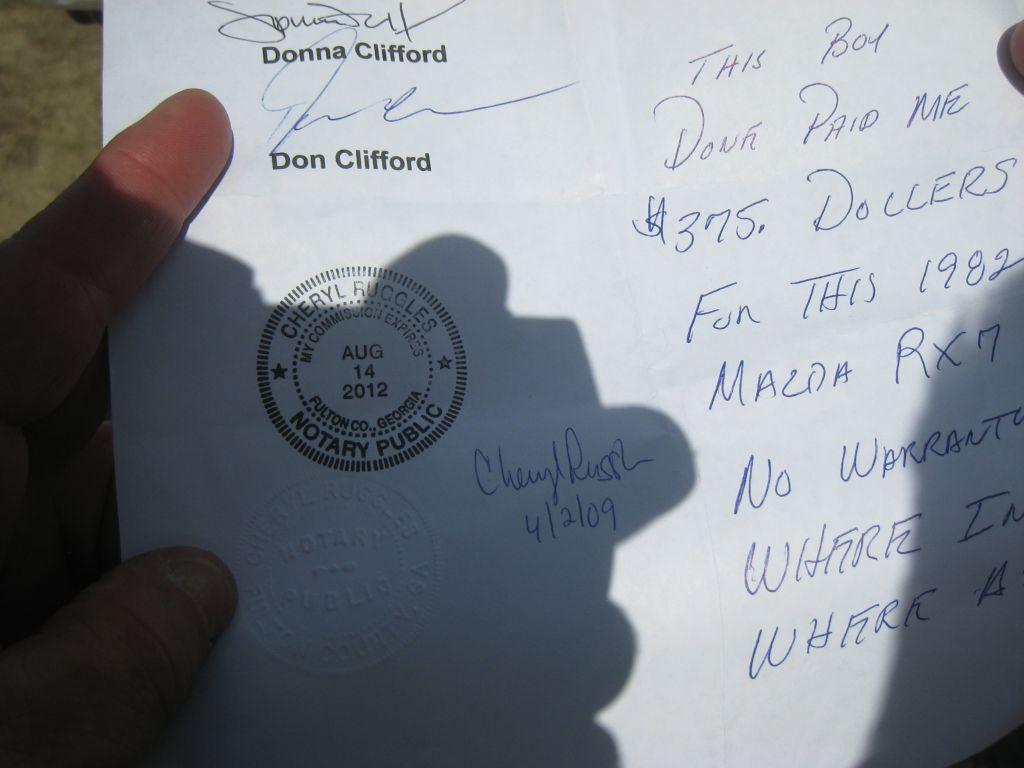 Donna Clifford
Don Clifford
THIS BOY
DONE PAID ME
$375. DOLLERS
FOR THIS 1982
MAZDA RX7
NO WARRANTY
WHERE IN
WHERE A
CHERYL RUGGLES
MY COMMISSION EXPIRES
AUG
14
2012
FULTON CO., GEORGIA
NOTARY PUBLIC
Cheryl Ruggles
4/2/09
CHERYL RUGGLES
NOTARY
PUBLIC